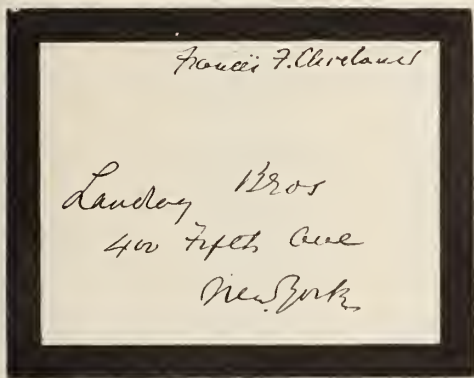 Frances F. Cleveland
Landay Bros
400 Fifth Ave
New York